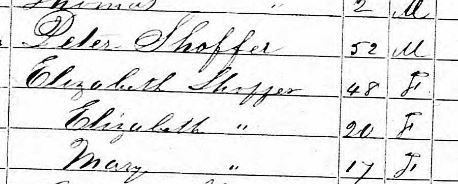 Thomas " 2 M
Peter Shoffer 52 M
Elizabeth Shoffer 48 F
Elizabeth " 20 F
Mary " 17 F